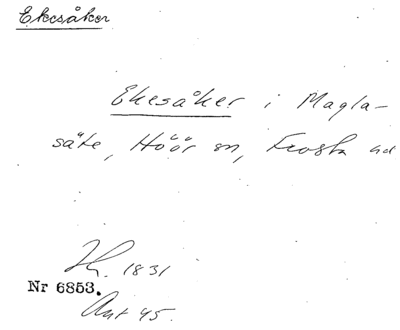 Ekesåker
Ekesåker i Magla-
säte, Höör sn, Frosta hd
1831
Nr 6853.
Ant 45.